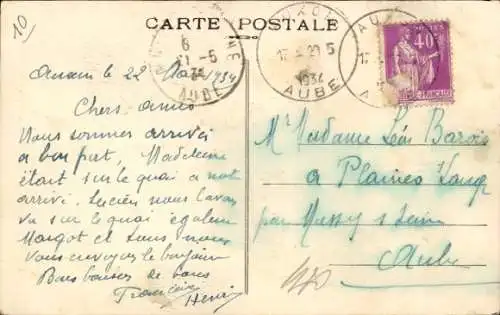 10
CARTE POSTALE
6
21-5
34
AUBE
17 - 21-5
1934
AUBE
POSTES
40
FRANÇAISE
le 22 Mai 1934
Chers amis
Nous sommes arrivés
a bon port, Madeleine
était sur le quai a not
arrivé. Lucien nous l'avons
vu sur le quai égalem
Margot et
Vous envoyer le bonjour
Bons baisers de tous
Henri
Mr Madame Léon Barois
a Plaines
par Mussy s Seine
Aube